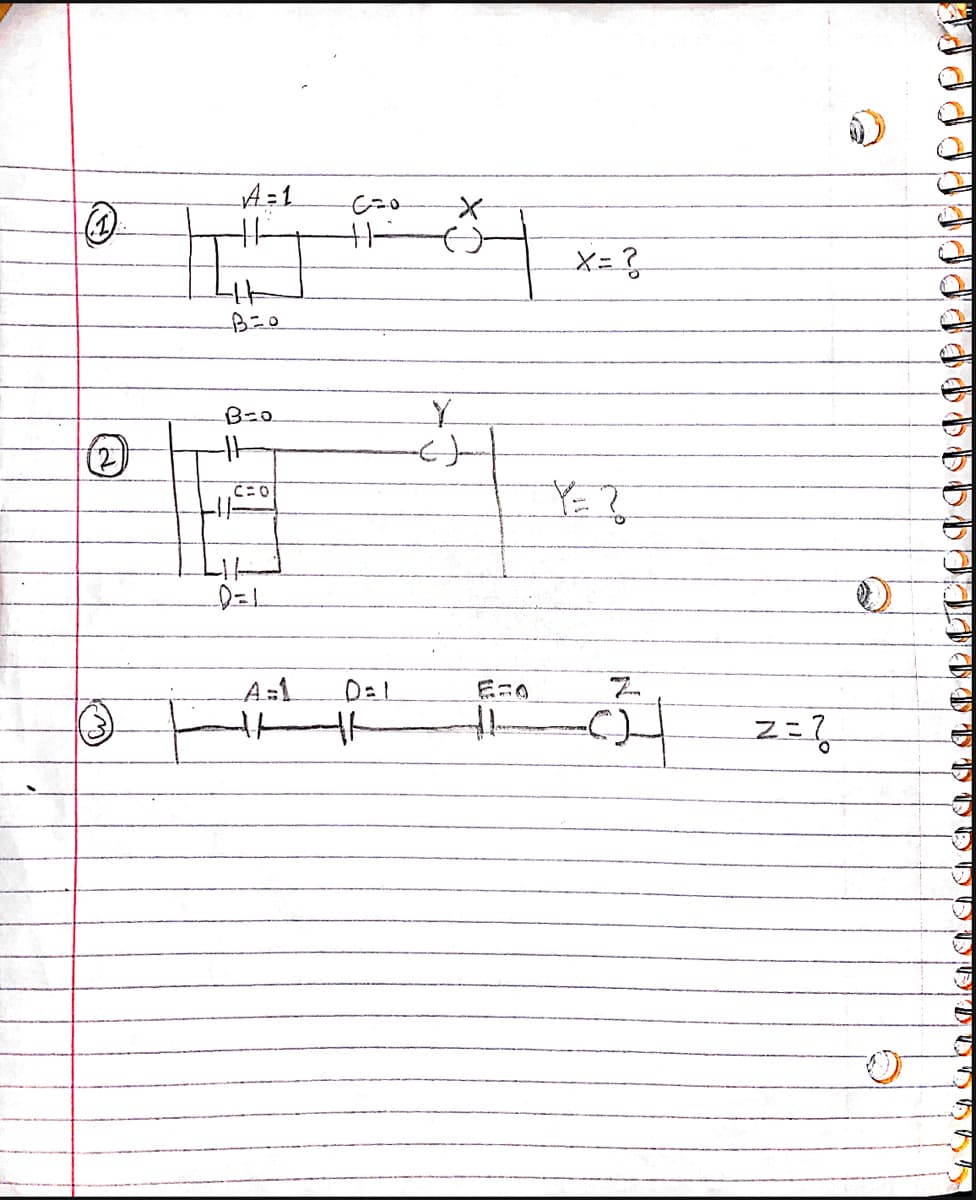 1
A=1 C=0 X
X=?
B=0
B=0 Y
2
C=0
Y=?
D=1
A=1 D=1 E=0 Z
3
Z=?